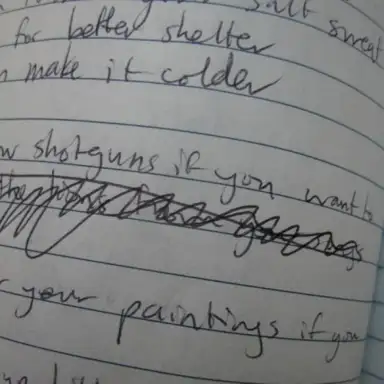 salt sweat
for better shelter
make it colder
shotguns if you want to
your paintings if you